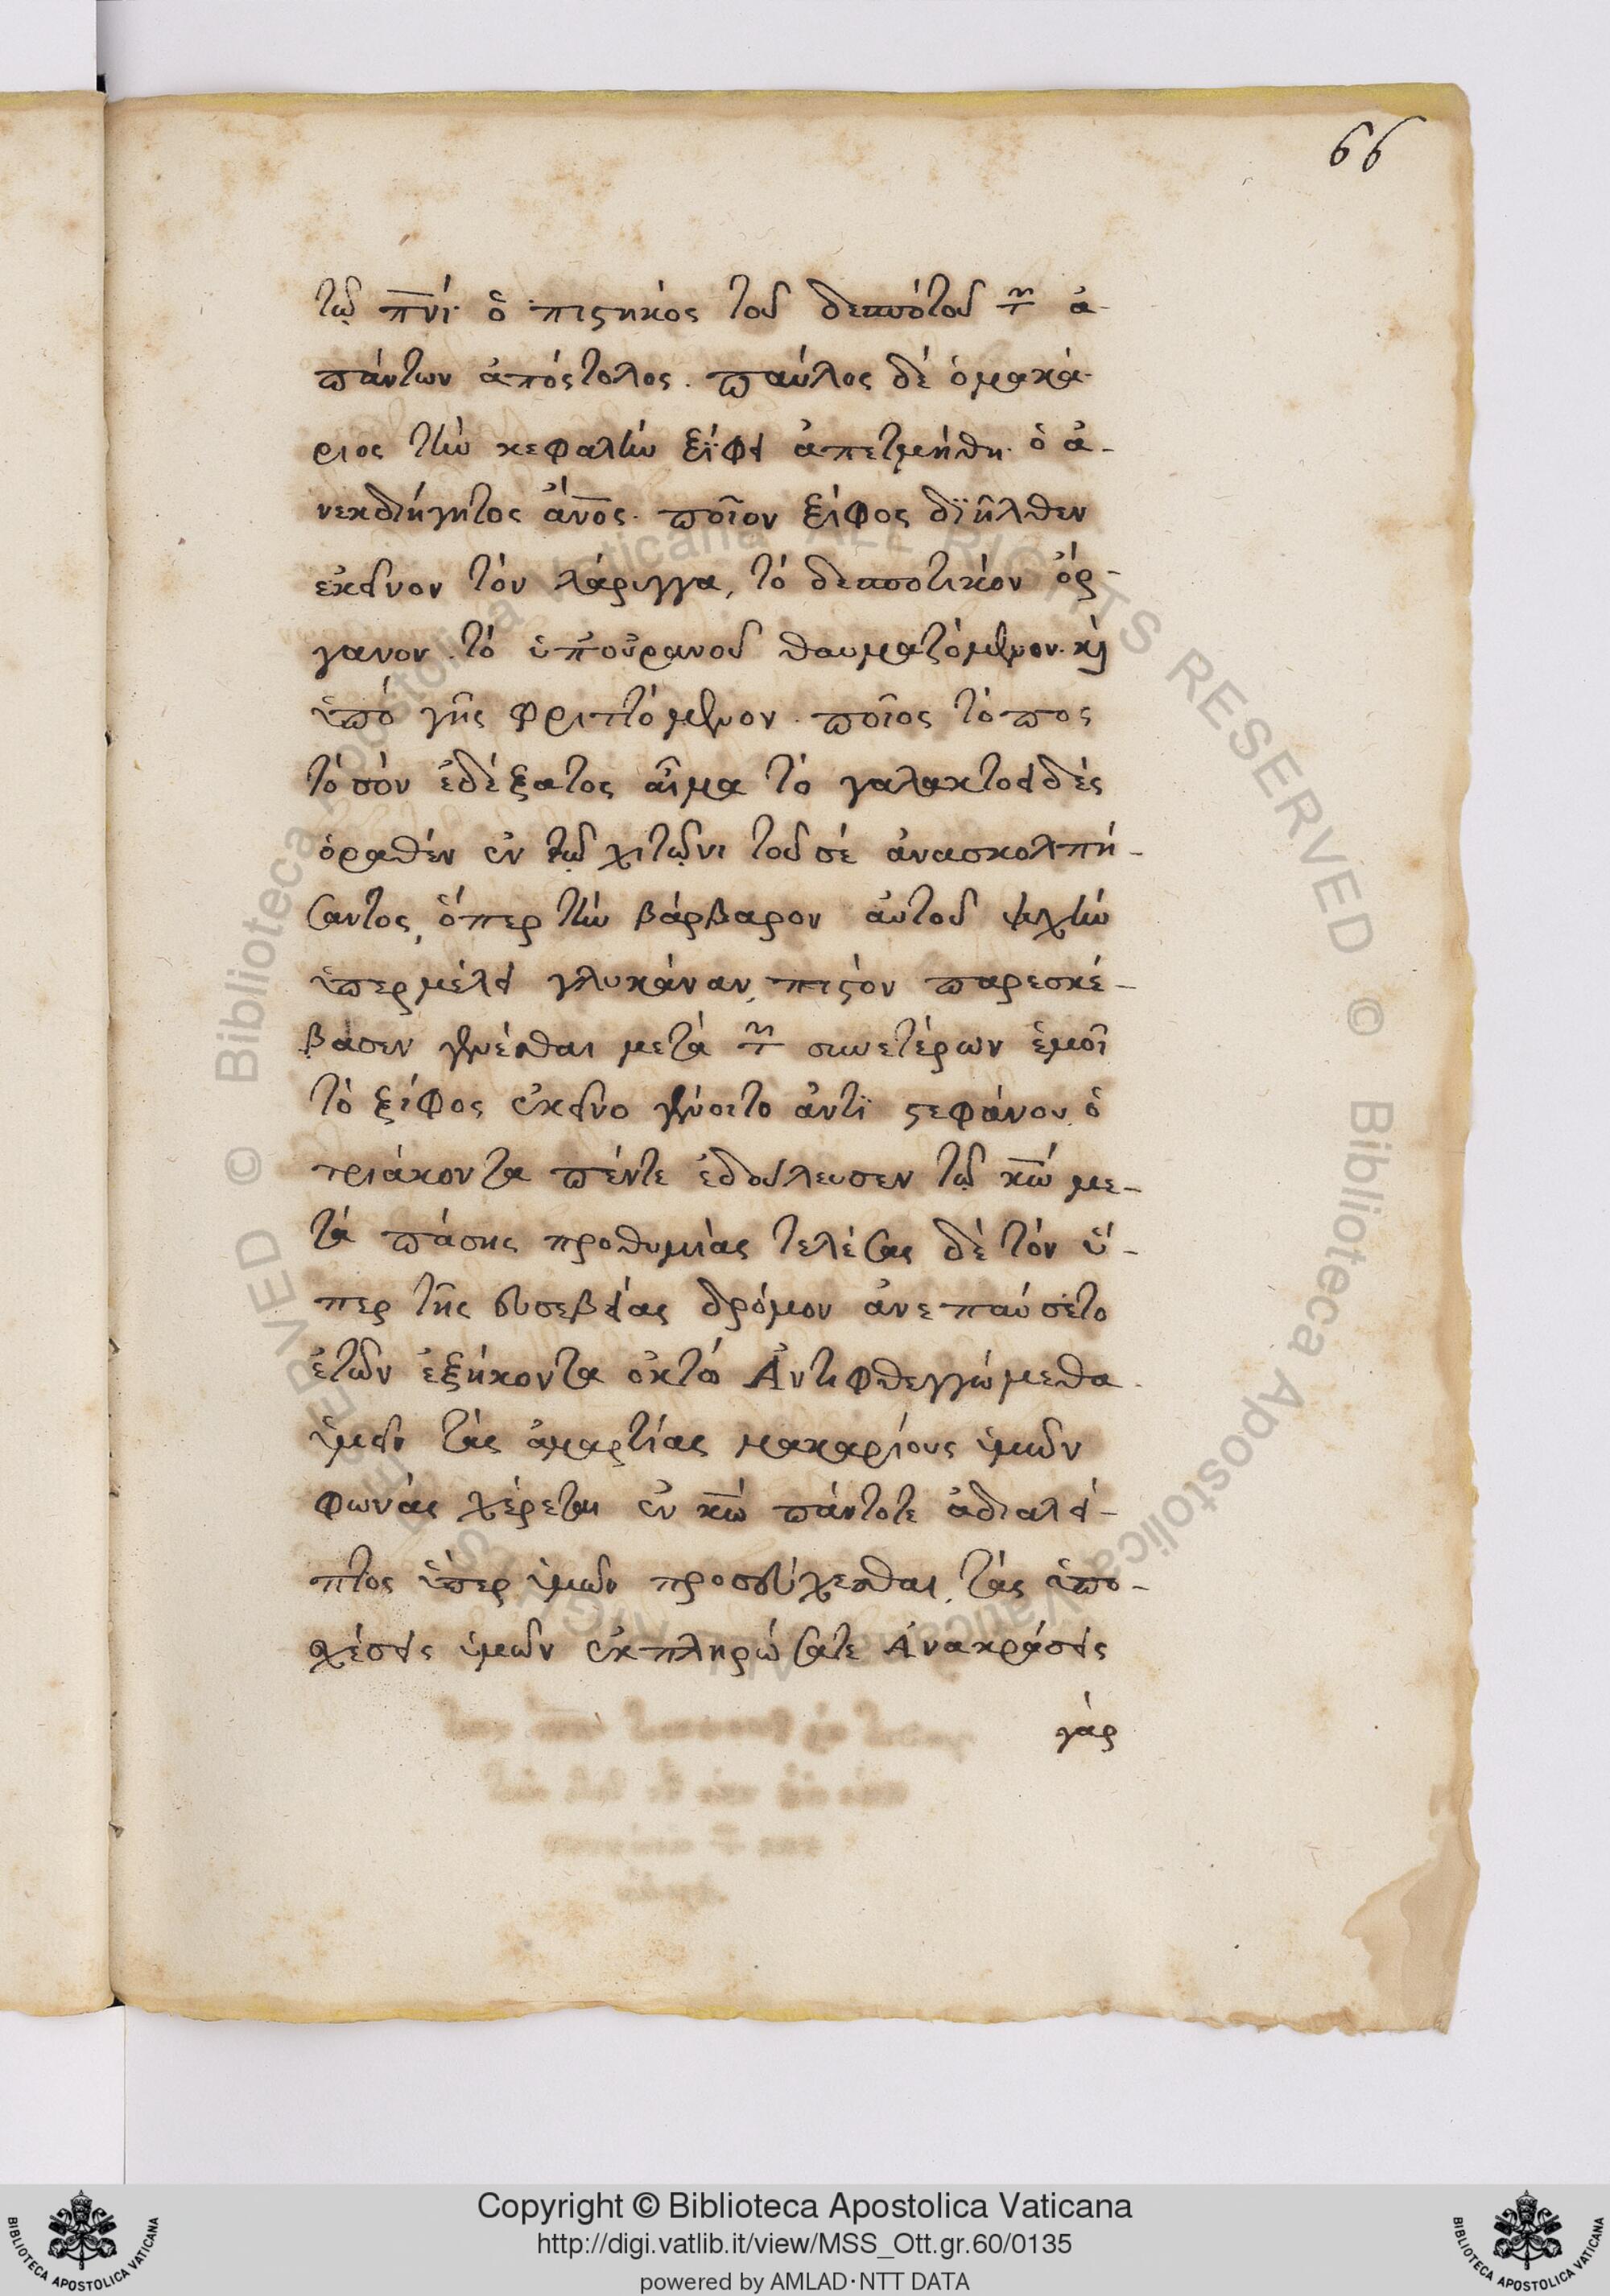 66
τῷ πνί· ὁ πιστικὸς τοῦ δεσπότου τῶν ἁ-
πάντων ἀπόστολος. παῦλος δέ ὁ μακά-
ριος τὴν κεφαλὴν ξίφει ἀπετμήθη· ὁ ἀ-
νεκδιήγητος ἄνος. ποῖον ξίφος διῆλθεν
ἐκεῖνον τὸν λάρυγγα, τὸ δεσποτικὸν ὄρ-
γανον. τὸ ὑπ' οὐρανοῦ θαυμαζόμενον. καὶ
ὑπὸ γῆς φριττόμενον. ποῖος τόπος
τὸ σὸν ἐδέξατος αἷμα τὸ γαλακτοειδὲς
ὁραθέν ἐν τῷ χιτῶνι τοῦ σέ ἀνασκολπή-
σαντος, ὅπερ τὴν βάρβαρον αὐτοῦ ψυχὴν
ὑπερ μέλει γλυκάναν, πιστὸν παρεσκέ-
βασεν γενέσθαι μετὰ τῶν συνετέρων ἐμοῖ
τὸ ξίφος ἐκεῖνο γένοιτο ἀντὶ στεφάνου. ὁ
τριάκοντα πέντε ἐδούλευσεν τῷ κῶ με-
τὰ πάσης προθυμίας τελέσας δὲ τὸν ὑ-
περ τῆς εὐσεβείας δρόμον ἀνεπαύσετο
ἐτῶν ἑξήκοντα ὀκτώ Ἀντιφθεγγώμεθα
ὑμεῖν τὰς ἁμαρτίας μακαρίους ὑμῶν
φωνάς χέρεται ἐν κῶ πάντοτε ἀδιαλεί-
πτος ὑπερ ὑμῶν προσεύχεσθαι, τὰς ὑπο-
χέσεις ὑμῶν ἐκπληρώσατε Ἀνακράσεις
γὰρ
Copyright © Biblioteca Apostolica Vaticana
http://digi.vatlib.it/view/MSS_Ott.gr.60/0135
powered by AMLAD·NTT DATA
BIBLIOTECA APOSTOLICA VATICANA
BIBLIOTECA APOSTOLICA VATICANA